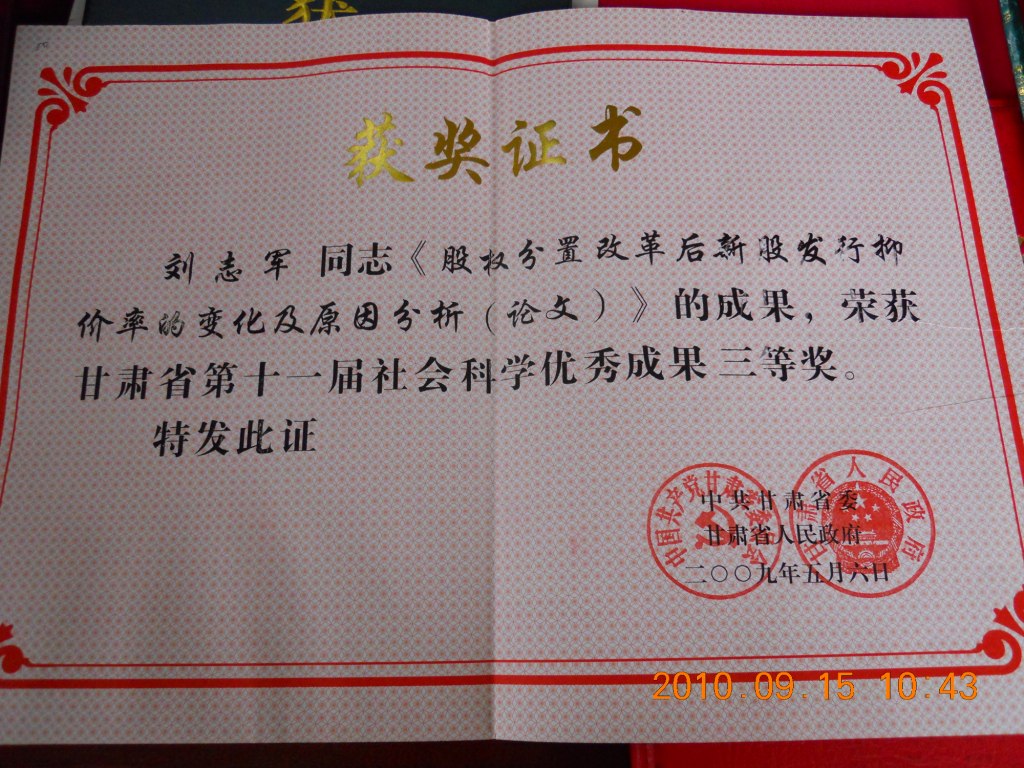 获
获奖证书
刘志军 同志《股权分置改革后新股发行抑
价率的变化及原因分析(论文)》的成果，荣获
甘肃省第十一届社会科学优秀成果 三等奖。
特发此证
中国共产党甘肃省委员会
甘肃省人民政府
中共甘肃省委
甘肃省人民政府
二〇〇九年五月六日
2010.09.15 10:43